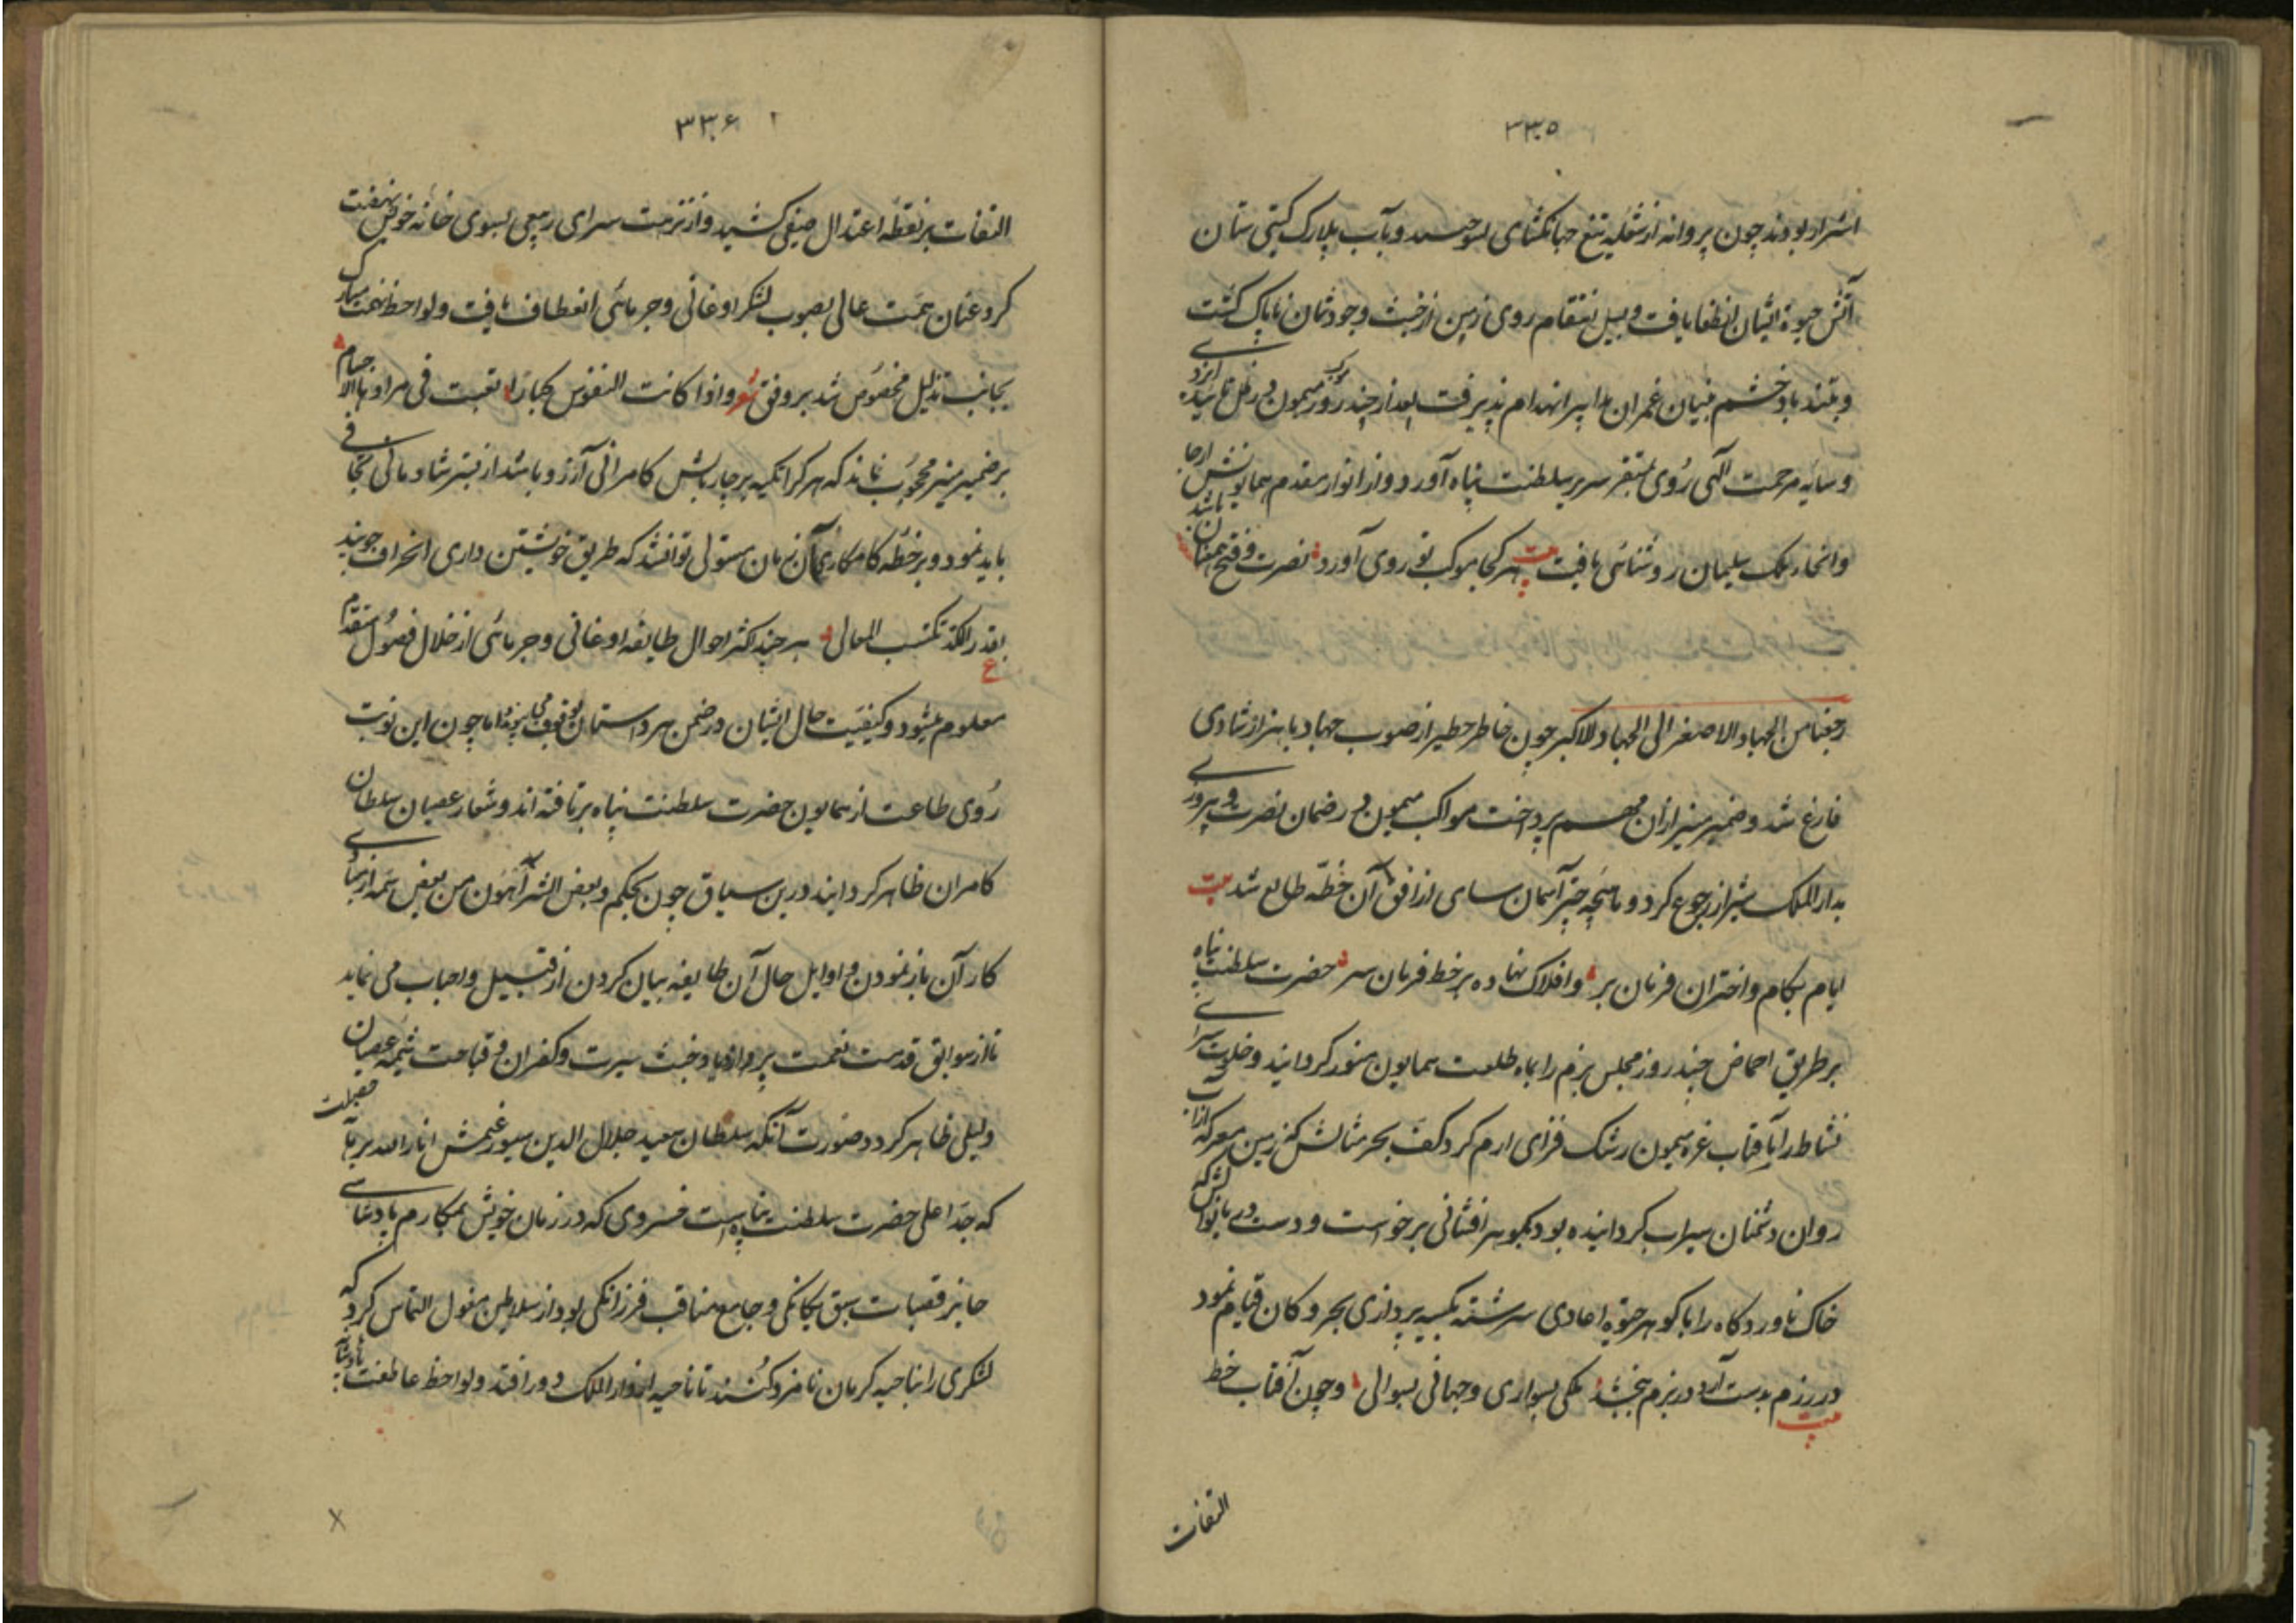 ۳۳۵
اشرار بودند چون پروانه از شعله تیغ جهانکشای بسوختند و بآب بلارک کیتی ستان
آتش حیوة ایشان انطفا یافت و بسیل انتقام روی زمین از خبث وجودشان پاک کشت
و بتند باد خشم بنیان عمران انهدام پذیرفت بعد از چند روز موکب میمون در ظل تایید ایزدی
و سایه مرحمت الهی روی بمستقر سریر سلطنت پناه آورد و از انوار مقدم همایونش ارجا
و انحاء ملک سلیمان روشنائی یافت بیت هر کجا موکب تو روی آورد نصرت و فتح همعنان باشد
رجعنا من الجهاد الاصغر الی الجهاد الاکبر چون خاطر خطیر از صوب جهاد با هزار شادی
فارغ شد و ضمیر منیر ازان مهم پرداخت مواکب میمون در ضمان نصرت و پیروزی
بدار الملک شیراز رجوع کرد و ماهچه چتر آسمان سای از افق آن خطه طالع شد بیت
ایام بکام و اختران فرمان بر و افلاک نهاده بر خط فرمان سر حضرت سلطنت پناه
بر طریق احماض چند روز مجلس بزم را بماه طلعت همایون منور کردانید و خلوت سرای
نشاط را بآفتاب غره میمون رشک فزای ارم کرد کف بحر مثالش کز زمین معرکه از آب
روان دشمنان سیراب کردانیده بود بکوهر افشانی برخواست و دست دریا نوالش که
خاک ناوردکاه را با کوهر حیوة اعادی سرشته بکیسه پردازی بحر و کان قیام نمود
بیت در رزم بدست آرد در بزم ببخشد ملکی بسواری و جهانی بسوالی و چون آفتاب خط
التفات
۳۳۶
التفات بر نقطه اعتدال صیفی کشید و از نزهت سرای ربیعی بسوی خانه خویش نهضت
کرد عنان همت عالی بصوب لشکر اوغانی و جرمائی انعطاف یافت و لواحظ نهمت مبارک
بجانب تذلیل مخصوص شد بر وفق شعر و اذا کانت النفوس کبارا تعبت فی مرادها الاجسام
بر ضمیر منیر محجوب نماند که هر کرا تکیه بر چار بالش کامرانی آرزو باشد از بستر شادمانی تجافی
باید نمود و بر خطه کامکاری آن زمان مستولی توانشد که طریق خویشتن داری انحراف جویند
ع بقدر الکد تکتسب المعالی هر چند اکثر احوال طایفه اوغانی و جرمائی از خلال فصول متقدم
معلوم میشود و کیفیت حال ایشان در ضمن هر داستان بوقوف می پیوندد اما چون این نوبت
روی طاعت از همایون حضرت سلطنت پناه برتافته اند و شعار عصیان سلطان
کامران ظاهر کردانید درین سیاق چون بحکم و بعض الشر اهون من بعض شمه از مبادی
کار آن باز نمودن و اوایل حال آن طایفه بیان کردن از قبیل واجبات می نماید
تا از سوابق قدمت نعمت بر ازدیاد خبث سیرت و کفران و قباحت شیمه عصیان
دلیلی ظاهر کردد صورت آنکه سلطان سعید جلال الدین سیورغتمش انار الله برهانه
که جد اعلی حضرت سلطنت پناهست خسروی که در زمان خویش بمکارم پادشاهی
حایز قصبات سبق یکانکی و جامع مناقب فرزانکی بود از سلاطین مغول التماس کرد که
لشکری را بناحیه کرمان نامزد کنند تا ناحیه از دار الملک دور افتد و لواحظ عاطفت پادشاه